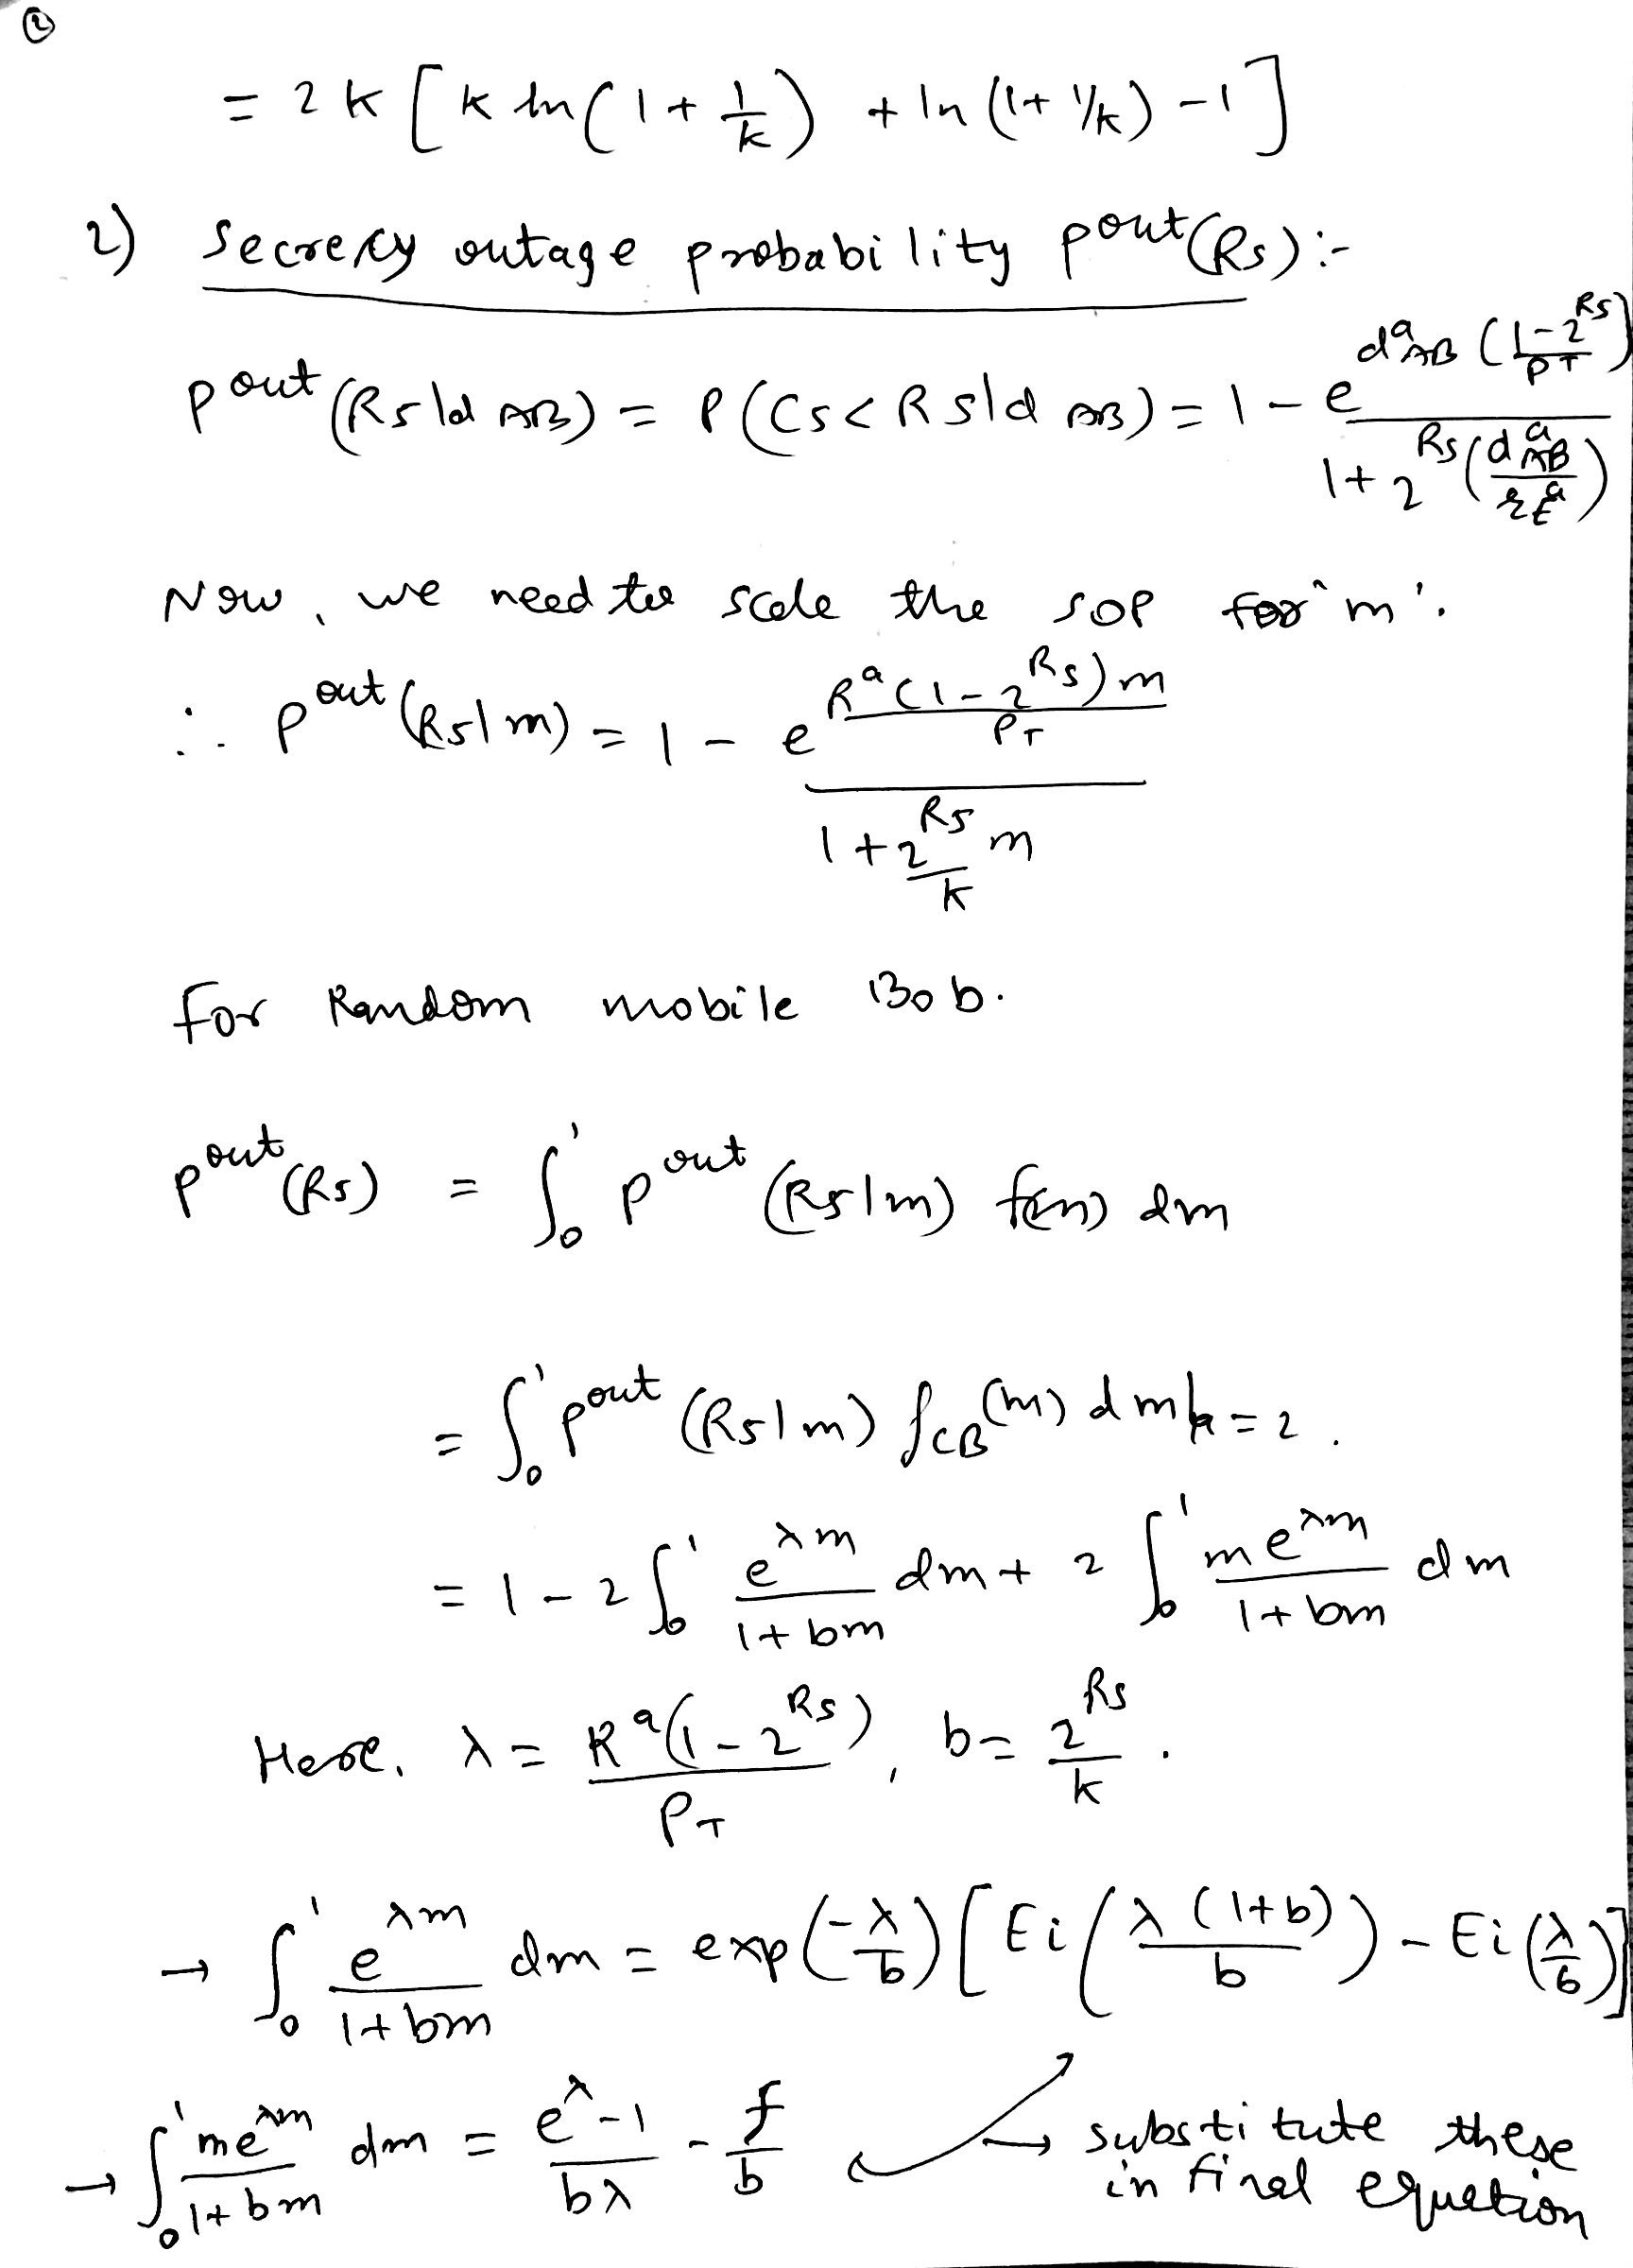 ②
= 2K [ K ln(1 + 1/K) + ln (1 + 1/K) - 1 ]
2) Secrecy outage probability p^out(Rs) :-
p^out (Rs|d_AB) = P(Cs < Rs|d_AB) = 1 - e^(d^a_AB (1-2^Rs)/P_T) / (1 + 2^Rs (d^a_AB / r_E^a))
Now, we need to scale the SOP for 'm'.
∴ p^out (Rs|m) = 1 - e^(R^a (1-2^Rs) m / P_T) / (1 + (2^Rs / K) m)
for Random mobile Bob.
p^out (Rs) = ∫_0^1 p^out (Rs|m) f(m) dm
= ∫_0^1 p^out (Rs|m) f_CB (m) dm|a = 2 .
= 1 - 2 ∫_0^1 e^(λm) / (1 + bm) dm + 2 ∫_0^1 m e^(λm) / (1 + bm) dm
Here, λ = R^a (1 - 2^Rs) / P_T , b = 2^Rs / K .
→ ∫_0^1 e^(λm) / (1 + bm) dm = exp(-λ/b) [ Ei ( λ(1+b) / b ) - Ei (λ/b) ]
→ ∫_0^1 m e^(λm) / (1 + bm) dm = (e^λ - 1) / bλ - f/b
substitute these
in final equation